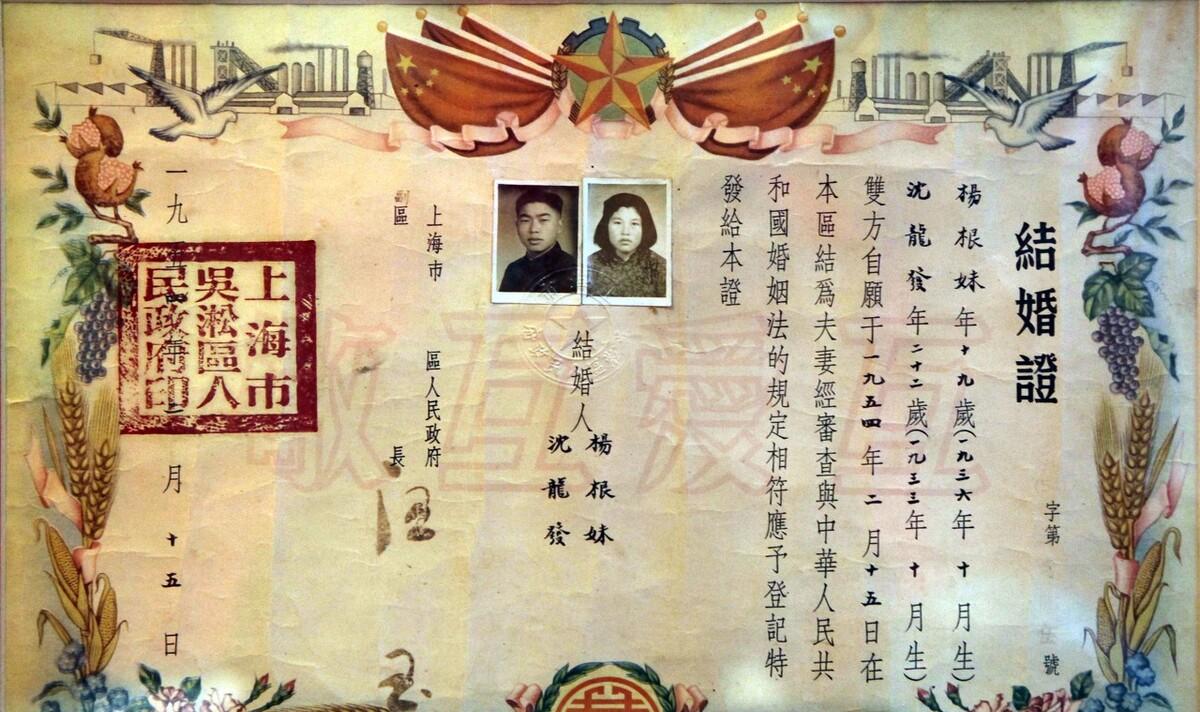 結婚證
字第 號
楊根妹年十九歲(一九三六年十月生)
沈龍發年二十二歲(一九三三年十月生)
雙方自願于一九五四年二月十五日在
本區結爲夫妻經審查與中華人民共
和國婚姻法的規定相符應予登記特
發給本證
結婚人
楊根妹
沈龍發
上海市 區人民政府
副區 長
一九五四年二月十五日
上海市
吳淞區人
民政府印
互愛互敬